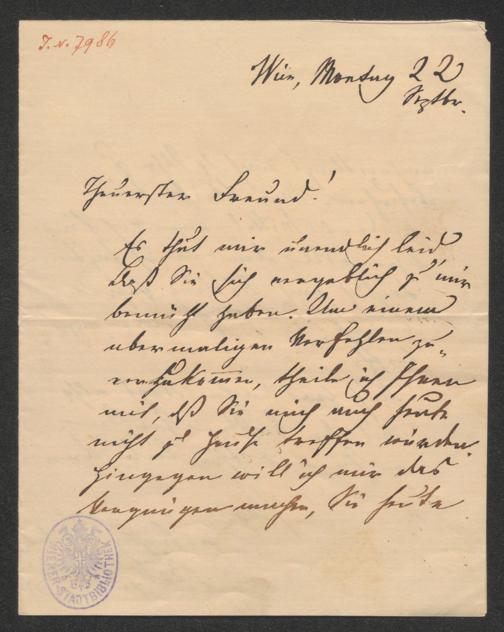 I. N. 7986
Wien, Montag 22
Septbr.
Theuerster Freund!
Es thut mir unendlich leid
daß Sie sich vergeblich zu mir
bemüht haben. Um einem
abermaligen Verfehlen zu-
vorzukommen, theile ich Ihnen
mit, dß Sie mich auch heute
nicht zu Hause treffen würden.
Hingegen will ich mir das
Vergnügen machen, Sie heute
WIENER STADTBIBLIOTHEK